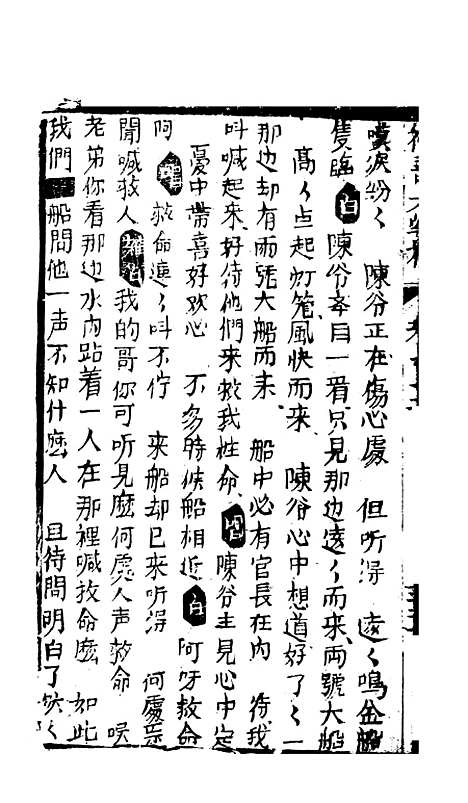 淚紛〻　陳爷正在傷心處　但听淂　遠〻鳴金船
隻臨　白　陳爷夲目一看只見那边遠〻而來両號大船
高〻点起灯篭風快而來　陳爷心中想道好了〻一
那边却有両號大船而来　船中必有官長在內　待我
叫喊起來好待他們來救我性命　唱　陳爷主見心中定
憂中帶喜好欢心　不多時候船相近　白　阿呀救命
阿　救命連〻叫不停　來船却已來听淂　何處
聞喊救人　我的哥你可听見麽何處人声救命　唉
老弟你看那边水內跕着一人在那裡喊救命麽　如此
我們　船問他一声不知什麽人　且待問明白了